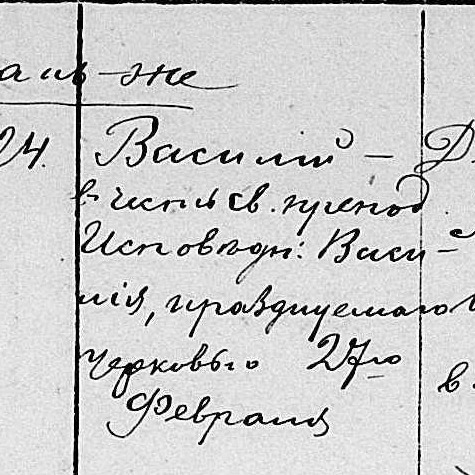 же
24. Василій — Д
въ честь св. препод.
Исповѣдн: Васи-
лія, празднуемаго
церковью 27го
Февраля
в